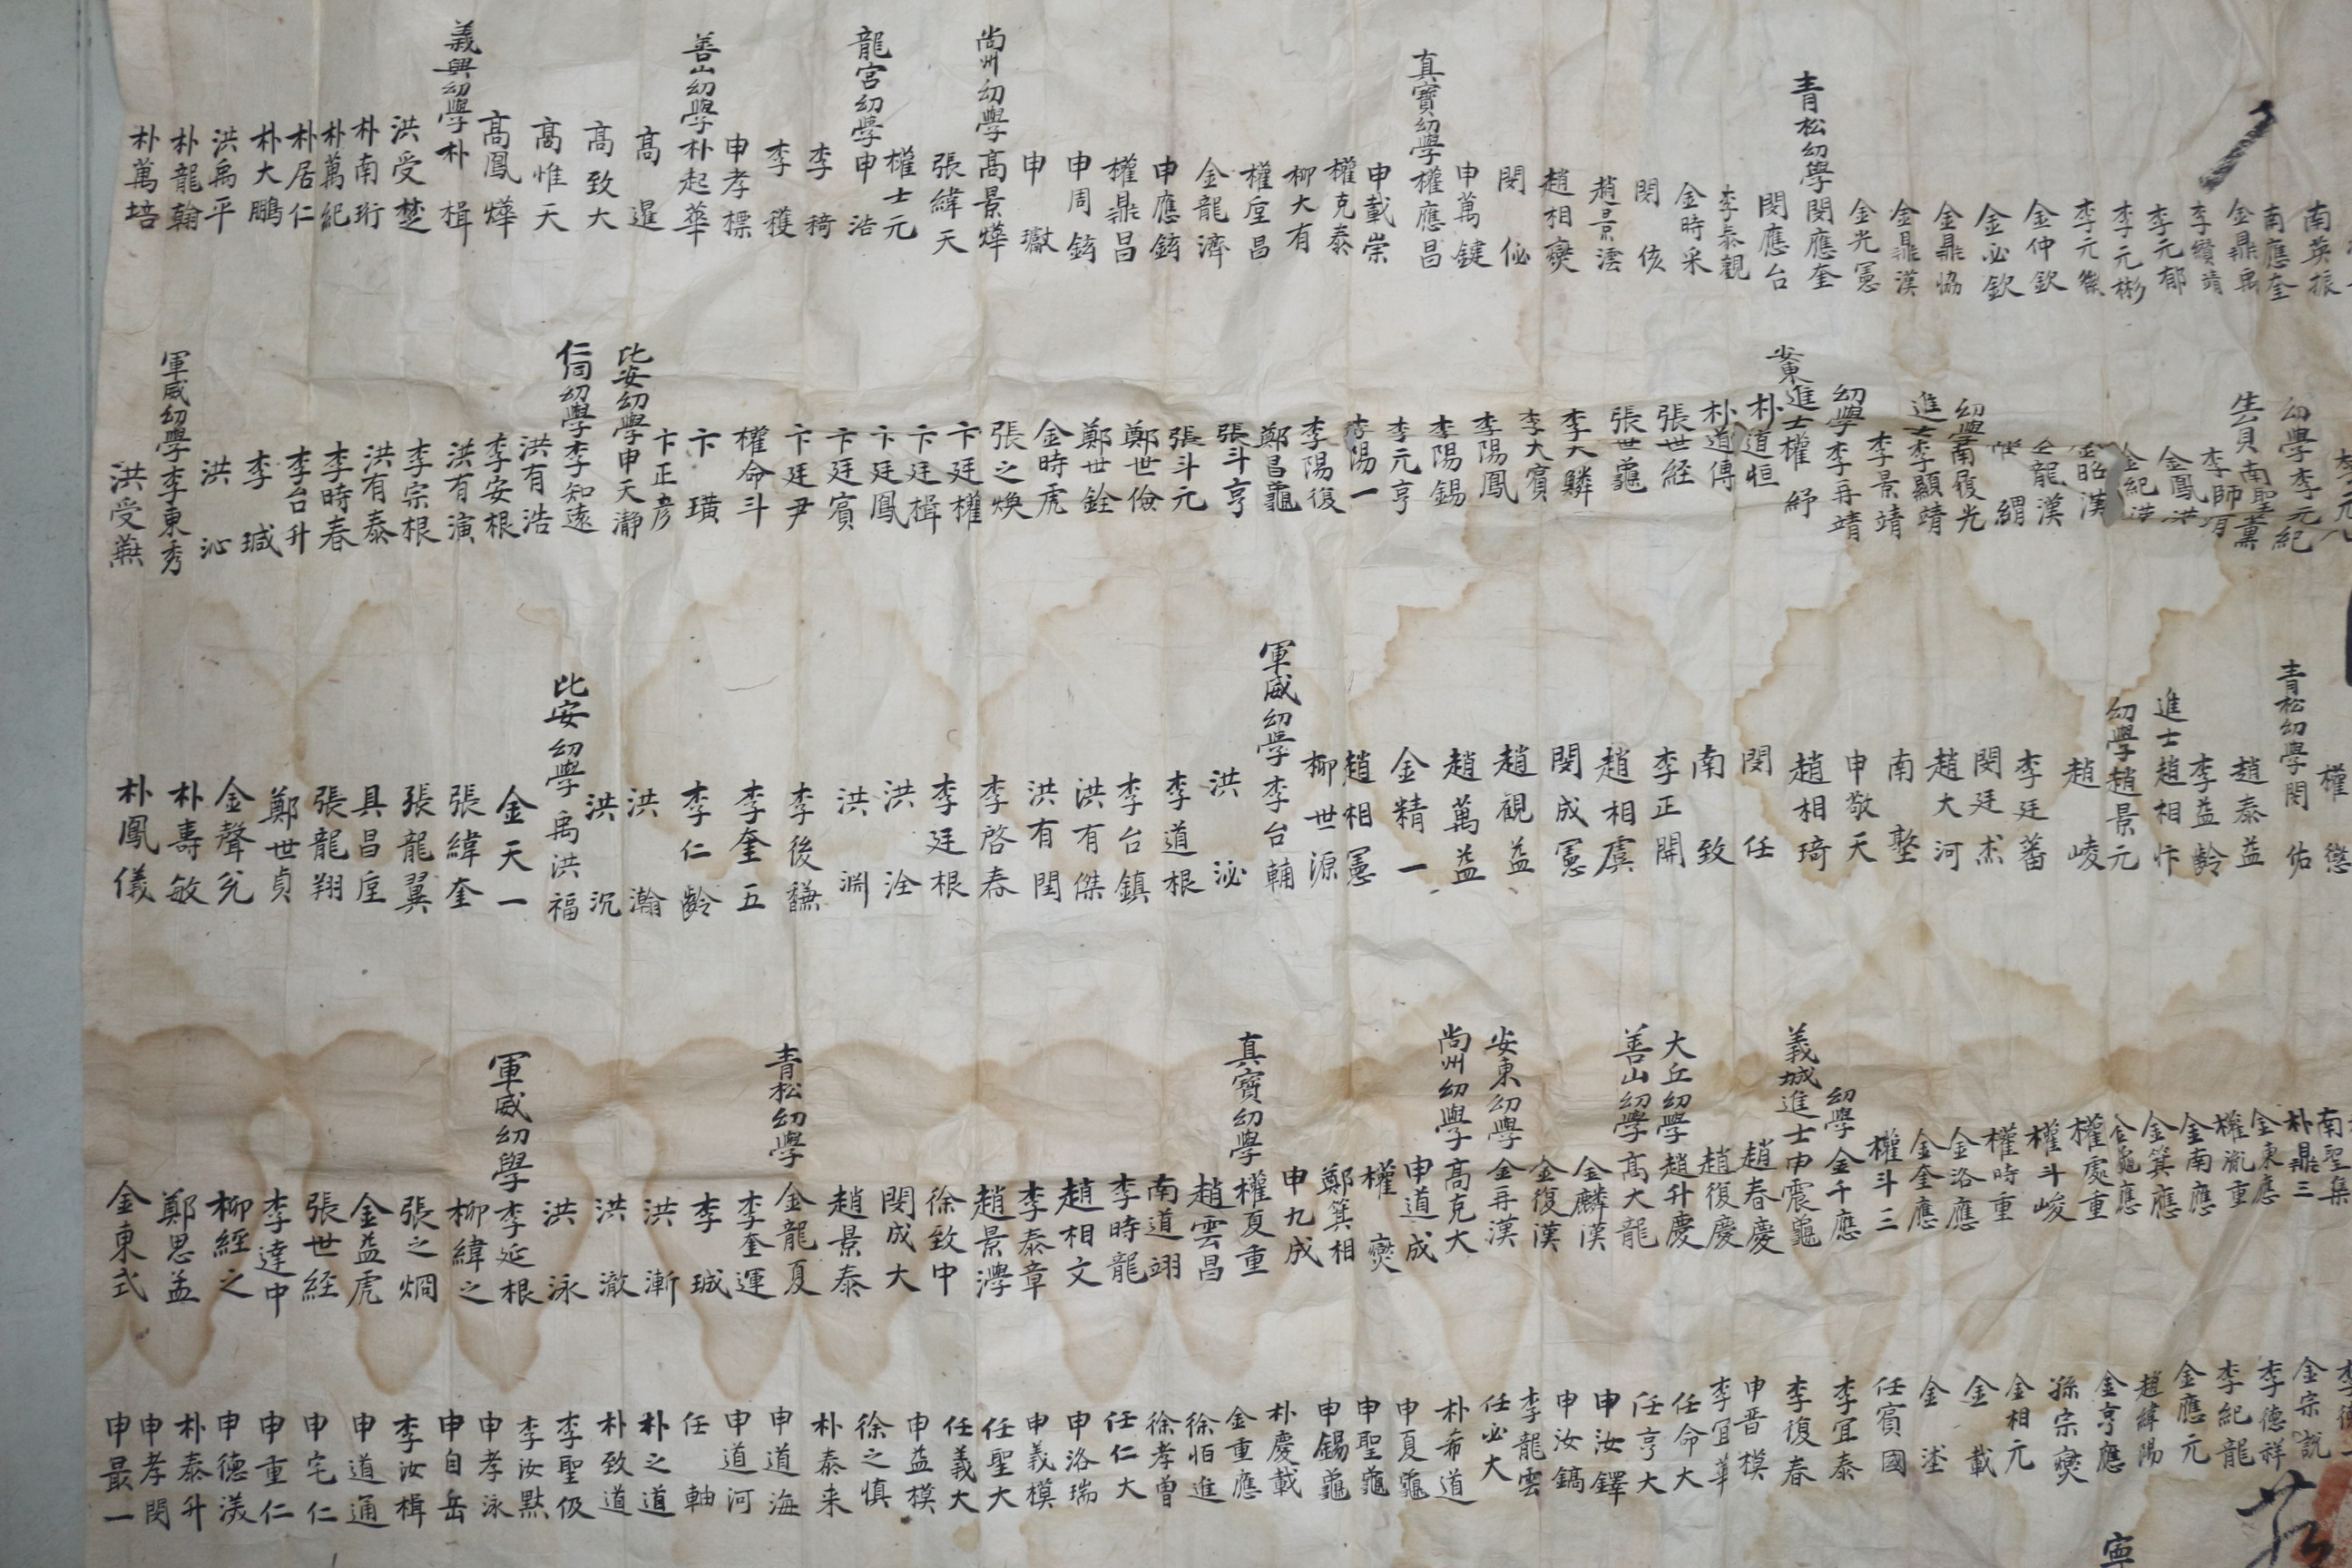 南英振
南應奎
金鼎禹
李纘靖
李元郁
李元彬
李元
金仲欽
金必欽
金鼎協
金鼎漢
金光憲
青松幼學閔應奎
閔應台
李泰觀
金時采
閔
趙景澐
趙相奭
閔佖
申萬鍵
真寶幼學權應昌
申載崇
權克泰
柳大有
權垕昌
金龍濟
申應鉉
權鼎昌
申周鉉
申瓛
尚州幼學高景燁
張緯天
權士元
龍宮幼學申浩
李稶
李穫
申孝標
善山幼學朴起華
高暹
高致大
高惟天
高鳳燁
義興幼學朴楫
洪受楚
朴南珩
朴萬紀
朴居仁
朴大鵬
洪禹平
朴龍翰
朴萬培
幼學李元紀
生員南聖薰
李師
金鳳
金紀
金昭漢
金龍漢
緭
幼學南復光
進士李顯靖
李景靖
幼學李再靖
安東進士權紓
朴道恒
朴道傅
張世経
張世龜
李天鱗
李大賓
李陽鳳
李陽錫
李元亨
李陽一
李陽復
鄭昌龜
張斗亨
張斗元
鄭世儉
鄭世銓
金時虎
張之煥
卞廷權
卞廷楫
卞廷鳳
卞廷賓
卞廷尹
權命斗
卞璜
卞正彦
比安幼學申天瀞
仁同幼學李知遠
洪有浩
李安根
洪有演
李宗根
洪有泰
李時春
李台升
李瑊
洪沁
軍威幼學李東秀
洪受燕
權
青松幼學閔佑
趙泰益
李益齡
進士趙相忭
幼學趙景元
趙崚
李廷蕃
閔廷杰
趙大河
南墍
申敬天
趙相琦
閔任
南致
李正開
趙相虞
閔成憲
趙觀益
趙萬益
金精一
趙相憲
柳世源
軍威幼學李台輔
洪泌
李道根
李台鎮
洪有傑
洪有閏
李啓春
李廷根
洪洤
洪淵
李後馦
李奎五
李仁齡
洪瀚
洪沉
比安幼學禹洪福
金天一
張緯奎
張龍翼
具昌垕
張龍翔
鄭世貞
金聲兌
朴壽敏
朴鳳儀
南聖集
朴鼎三
金東應
權胤重
金南應
金箕應
金龜應
權處重
權斗峻
權時重
金洛應
金奎應
權斗三
幼學金千應
義城進士申震龜
趙春慶
趙復慶
大丘幼學趙升慶
善山幼學高大龍
金麟漢
金復漢
安東幼學金再漢
尚州幼學高克大
申道成
權奭
鄭箕相
申九成
真寶幼學權夏重
趙雲昌
南道翊
李時龍
趙相文
李泰章
趙景澩
徐致中
閔成大
趙景泰
青松幼學金龍夏
李奎運
李珹
洪漸
洪澈
洪泳
軍威幼學李延根
柳緯之
張之烱
金益虎
張世経
李達中
柳經之
鄭思益
金東式
金宗說
李德祥
李紀龍
金應元
趙緯陽
金亨應
孫宗奭
金相元
金載
金
任賓國
李宜泰
李復春
申晋模
李宜華
任命大
任亨大
申汝鐸
申汝鎬
李龍雲
任必大
朴希道
申夏龜
申聖龜
申錫龜
朴慶載
金重應
徐恒進
徐孝曾
任仁大
申洛瑞
申義模
任聖大
任義大
申益模
徐之慎
朴泰来
申道海
申道河
任軸
朴之道
朴致道
李聖伋
李汝黙
申孝泳
申自岳
李汝楫
申道通
申宅仁
申重仁
申德渼
朴泰升
申孝閔
申最一
寧